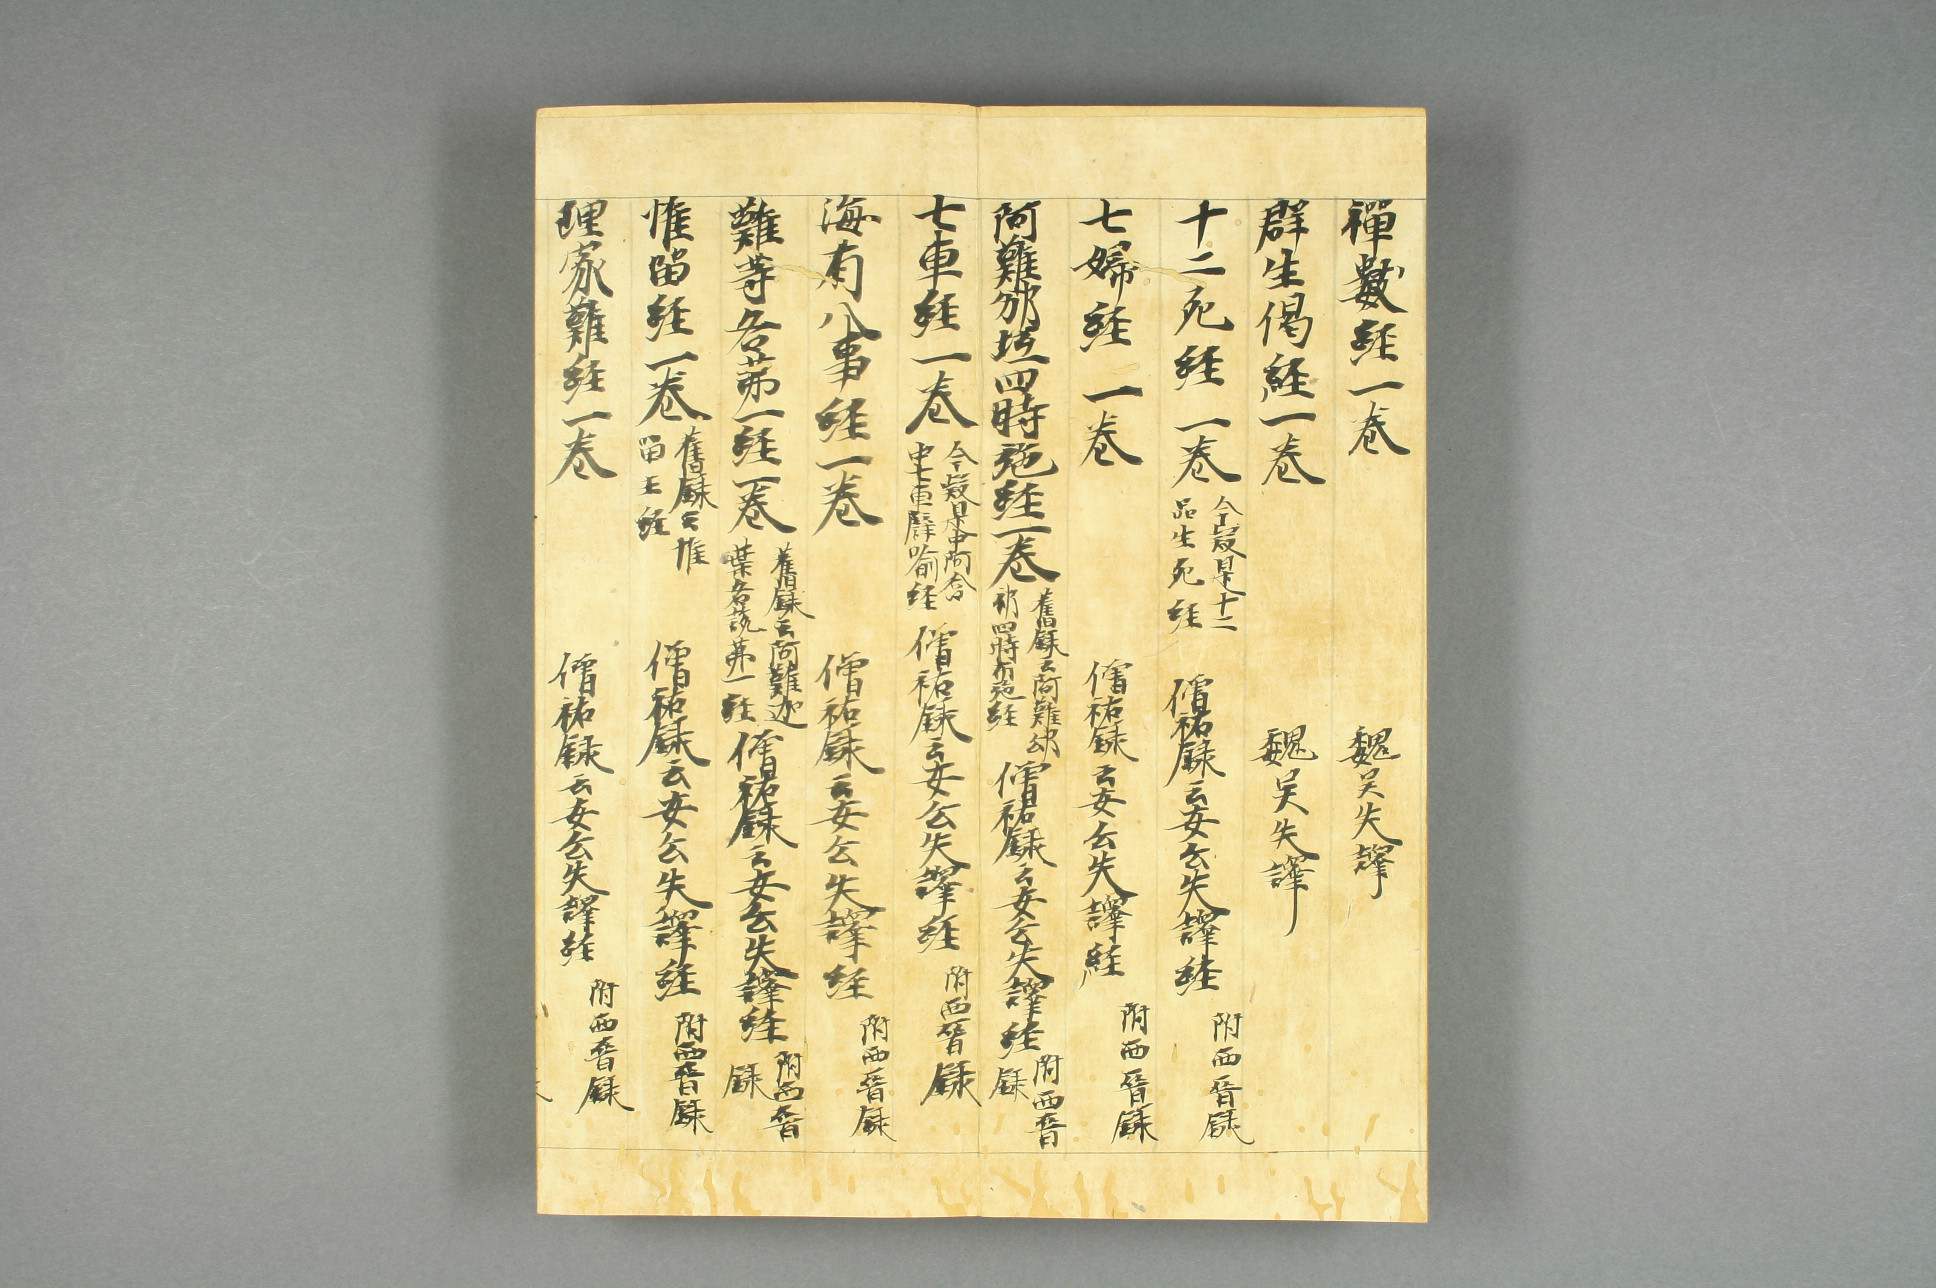 禪數經一卷 魏吴失譯
群生偈經一卷 魏吴失譯
十二死經一卷 今疑是十二品生死經 僧祐録云安公失譯経 附西晉録
七婦経一卷 僧祐録云安公失譯経 附西晉録
阿難邠坻四時施経一卷 舊録云阿難邠邠四時布施経 僧祐録云安公失譯経 附西晉録
七車経一卷 今疑是中阿含中七車譬喻経 僧祐録云安公失譯経 附西晉録
海有八事経一卷 僧祐録云安公失譯経 附西晉録
難等各第一経一卷 舊録云阿難迦葉各説第一経 僧祐録云安公失譯経 附西晉録
惟留経一卷 舊録云惟留王経 僧祐録云安公失譯経 附西晉録
理家難経一卷 僧祐録云安公失譯経 附西晉録